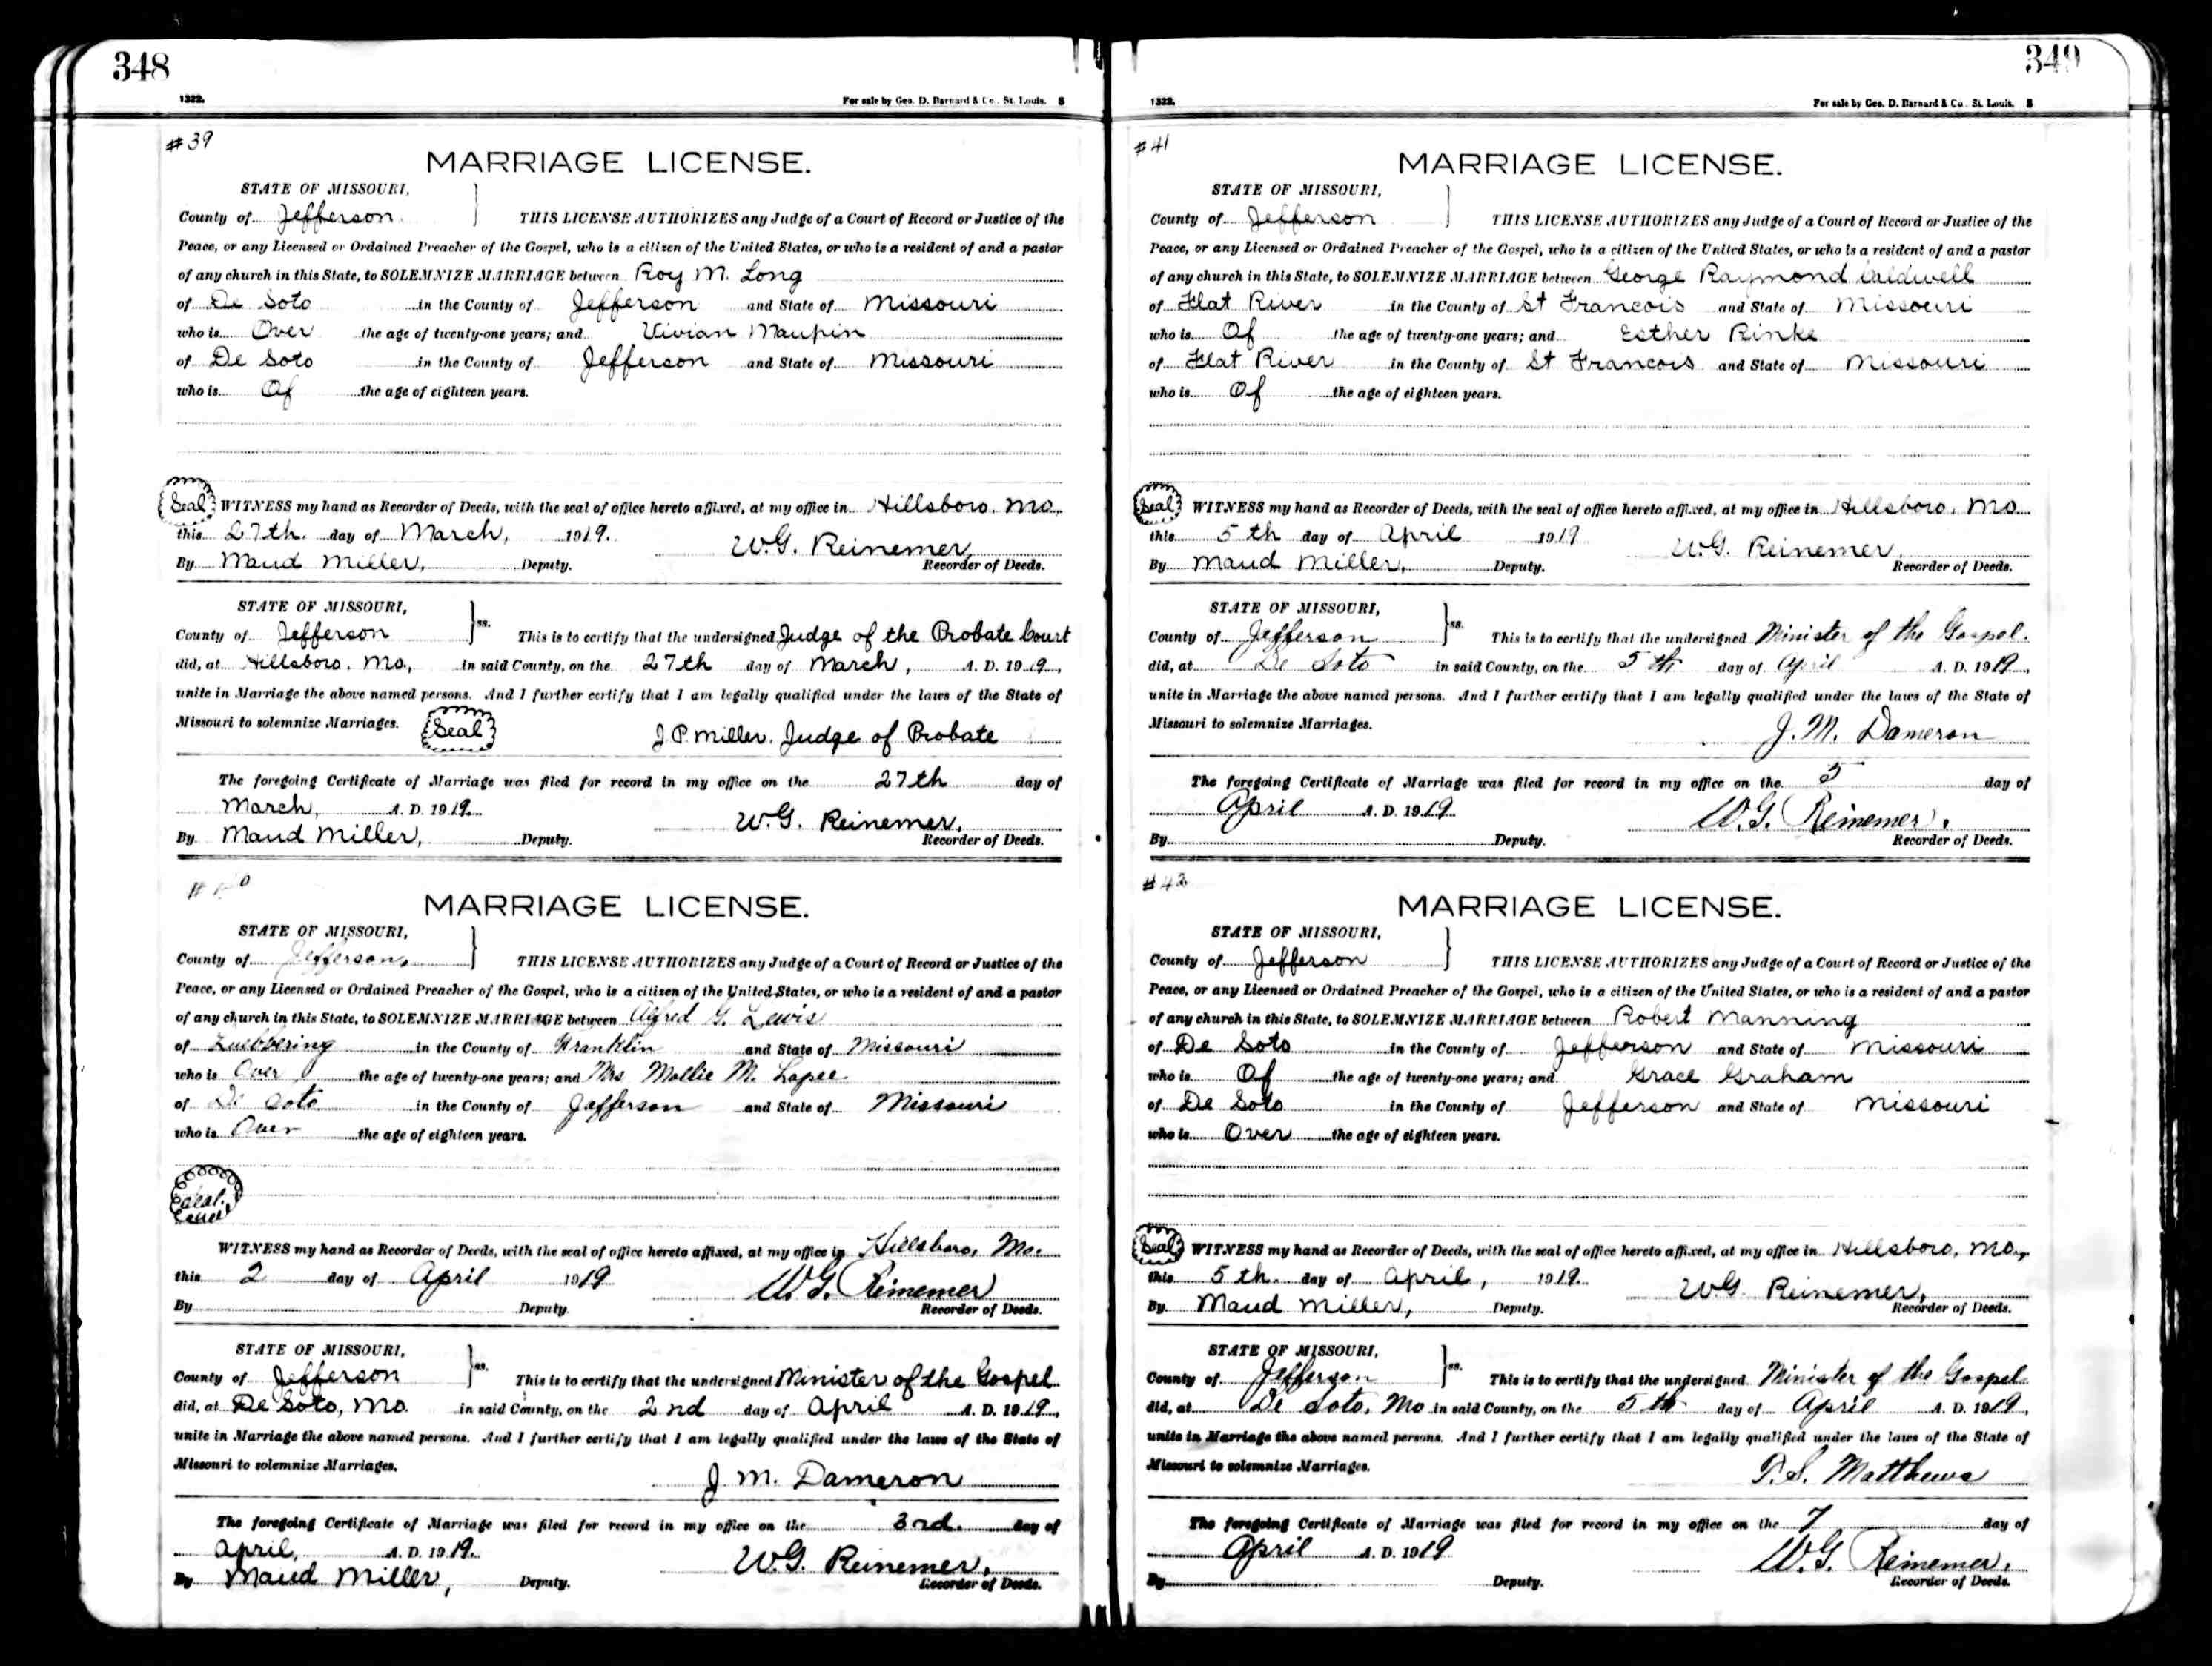 348
1322.
For sale by Geo. D. Barnard & Co. St. Louis. S
#39
MARRIAGE LICENSE.
STATE OF MISSOURI,
County of Jefferson THIS LICENSE AUTHORIZES any Judge of a Court of Record or Justice of the
Peace, or any Licensed or Ordained Preacher of the Gospel, who is a citizen of the United States, or who is a resident of and a pastor
of any church in this State, to SOLEMNIZE MARRIAGE between Roy M. Long
of De Soto in the County of Jefferson and State of Missouri
who is Over the age of twenty-one years; and Vivian Maupin
of De Soto in the County of Jefferson and State of Missouri
who is Of the age of eighteen years.
Seal WITNESS my hand as Recorder of Deeds, with the seal of office hereto affixed, at my office in Hillsboro, Mo.,
this 27th. day of March, 1919. W.G. Reinemer,
By Maud Miller, Deputy. Recorder of Deeds.
STATE OF MISSOURI,
County of Jefferson ss. This is to certify that the undersigned Judge of the Probate Court
did, at Hillsboro, Mo., in said County, on the 27th day of March, A. D. 1919,
unite in Marriage the above named persons. And I further certify that I am legally qualified under the laws of the State of
Missouri to solemnize Marriages. Seal J.P. Miller, Judge of Probate
The foregoing Certificate of Marriage was filed for record in my office on the 27th day of
March, A. D. 1919. W.G. Reinemer,
By Maud Miller, Deputy. Recorder of Deeds.
MARRIAGE LICENSE.
STATE OF MISSOURI,
County of Jefferson, THIS LICENSE AUTHORIZES any Judge of a Court of Record or Justice of the
Peace, or any Licensed or Ordained Preacher of the Gospel, who is a citizen of the United States, or who is a resident of and a pastor
of any church in this State, to SOLEMNIZE MARRIAGE between Alfred G. Lewis
of in the County of Franklin and State of Missouri
who is Over the age of twenty-one years; and Mrs Mollie M.
of De Soto in the County of Jefferson and State of Missouri
who is Over the age of eighteen years.
Seal.
WITNESS my hand as Recorder of Deeds, with the seal of office hereto affixed, at my office in Hillsboro, Mo.
this 2 day of April 1919 W.G. Reinemer
By Deputy. Recorder of Deeds.
STATE OF MISSOURI,
County of Jefferson ss. This is to certify that the undersigned Minister of the Gospel
did, at De Soto, Mo. in said County, on the 2nd day of April A. D. 1919,
unite in Marriage the above named persons. And I further certify that I am legally qualified under the laws of the State of
Missouri to solemnize Marriages. J. M. Dameron
The foregoing Certificate of Marriage was filed for record in my office on the 3rd. day of
April, A. D. 1919. W.G. Reinemer,
By Maud Miller, Deputy. Recorder of Deeds.
349
1322.
For sale by Geo. D. Barnard & Co. St. Louis. S
#41
MARRIAGE LICENSE.
STATE OF MISSOURI,
County of Jefferson THIS LICENSE AUTHORIZES any Judge of a Court of Record or Justice of the
Peace, or any Licensed or Ordained Preacher of the Gospel, who is a citizen of the United States, or who is a resident of and a pastor
of any church in this State, to SOLEMNIZE MARRIAGE between George Raymond Caldwell
of Flat River in the County of St Francois and State of Missouri
who is Of the age of twenty-one years; and Esther Rinke
of Flat River in the County of St Francois and State of Missouri
who is Of the age of eighteen years.
Seal WITNESS my hand as Recorder of Deeds, with the seal of office hereto affixed, at my office in Hillsboro, Mo.
this 5th day of April 1919 W.G. Reinemer,
By Maud Miller, Deputy. Recorder of Deeds.
STATE OF MISSOURI,
County of Jefferson ss. This is to certify that the undersigned Minister of the Gospel.
did, at De Soto in said County, on the 5th day of April A. D. 1919,
unite in Marriage the above named persons. And I further certify that I am legally qualified under the laws of the State of
Missouri to solemnize Marriages. J. M. Dameron
The foregoing Certificate of Marriage was filed for record in my office on the 5 day of
April A. D. 1919. W.G. Reinemer,
By Deputy. Recorder of Deeds.
#42
MARRIAGE LICENSE.
STATE OF MISSOURI,
County of Jefferson THIS LICENSE AUTHORIZES any Judge of a Court of Record or Justice of the
Peace, or any Licensed or Ordained Preacher of the Gospel, who is a citizen of the United States, or who is a resident of and a pastor
of any church in this State, to SOLEMNIZE MARRIAGE between Robert Manning
of De Soto in the County of Jefferson and State of Missouri
who is Of the age of twenty-one years; and Grace Graham
of De Soto in the County of Jefferson and State of Missouri
who is Over the age of eighteen years.
Seal WITNESS my hand as Recorder of Deeds, with the seal of office hereto affixed, at my office in Hillsboro, Mo.,
this 5th. day of April, 1919. W.G. Reinemer,
By Maud Miller, Deputy. Recorder of Deeds.
STATE OF MISSOURI,
County of Jefferson ss. This is to certify that the undersigned Minister of the Gospel
did, at De Soto, Mo in said County, on the 5th day of April A. D. 1919,
unite in Marriage the above named persons. And I further certify that I am legally qualified under the laws of the State of
Missouri to solemnize Marriages. Matthews
The foregoing Certificate of Marriage was filed for record in my office on the 7 day of
April A. D. 1919 W.G. Reinemer,
By Deputy. Recorder of Deeds.